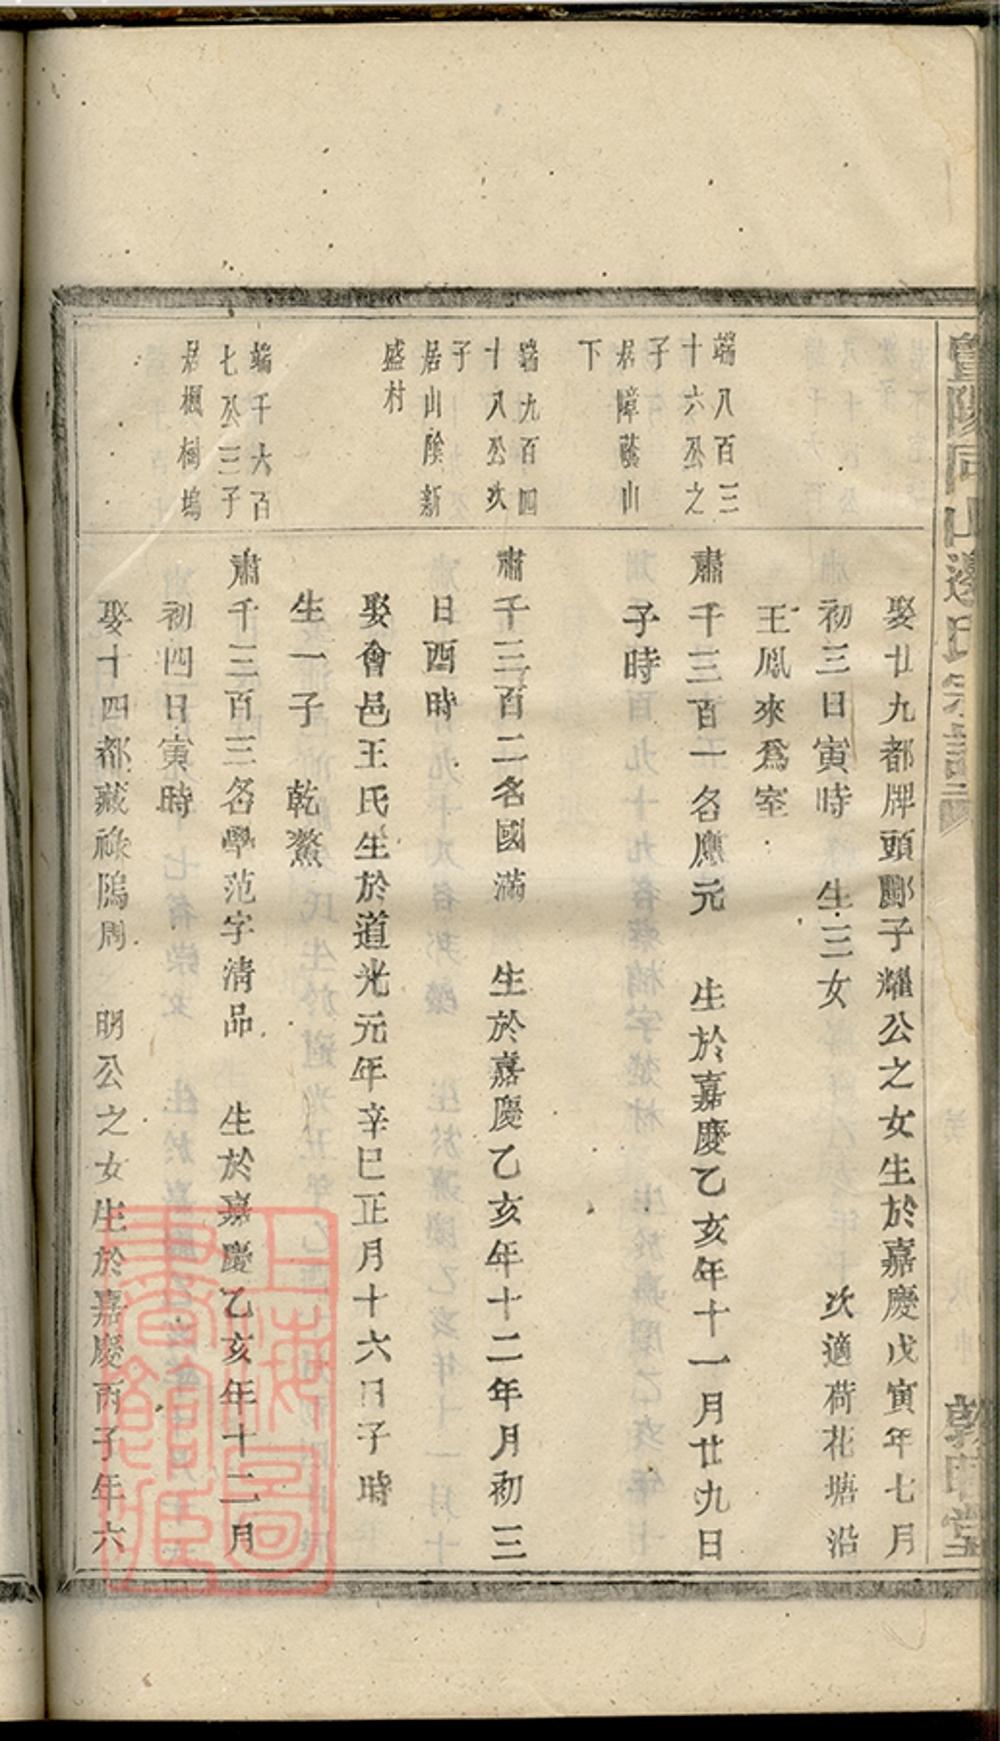 暨陽同山邊氏宗譜
敦睦堂
娶廿九都牌頭鄭子耀公之女生於嘉慶戊寅年七月
初三日寅時 生三女 次適荷花塘沿
王鳳來爲室
端八百三
十六公之
子
居嶂蔭山
下
肅千三百一名應元 生於嘉慶乙亥年十一月廿九日
子時
端九百四
十八公次
子
居山陰新
盛村
肅千三百二名國滿 生於嘉慶乙亥年十二年月初三
日酉時
娶會邑王氏生於道光元年辛巳正月十六日子時
生一子 乾鰲
端千六百
七公三子
居楓樹塢
肅千三百三名學范字清品 生於嘉慶乙亥年十二月
初四日寅時
娶十四都藏祿隖周 明公之女生於嘉慶丙子年六
上海圖書館藏